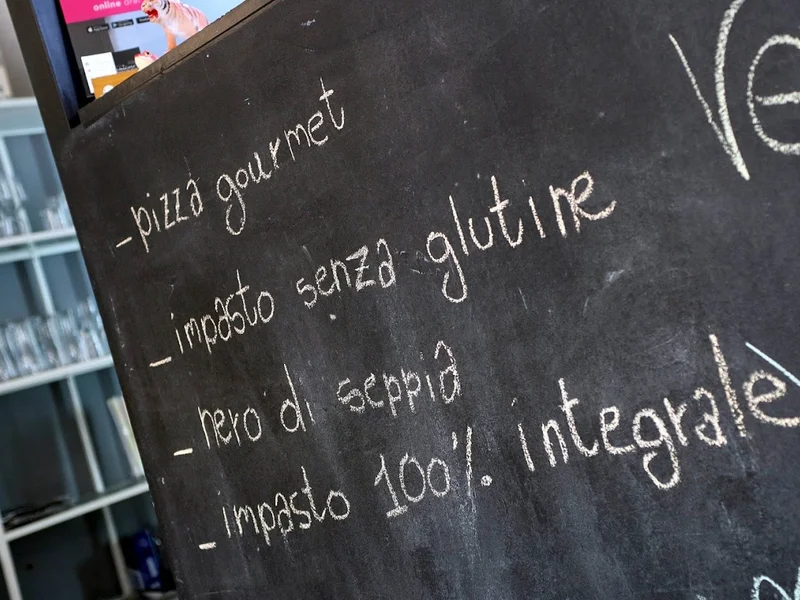 online
_ pizza gourmet
_ impasto senza glutine
_ nero di seppia
_ impasto 100% integrale